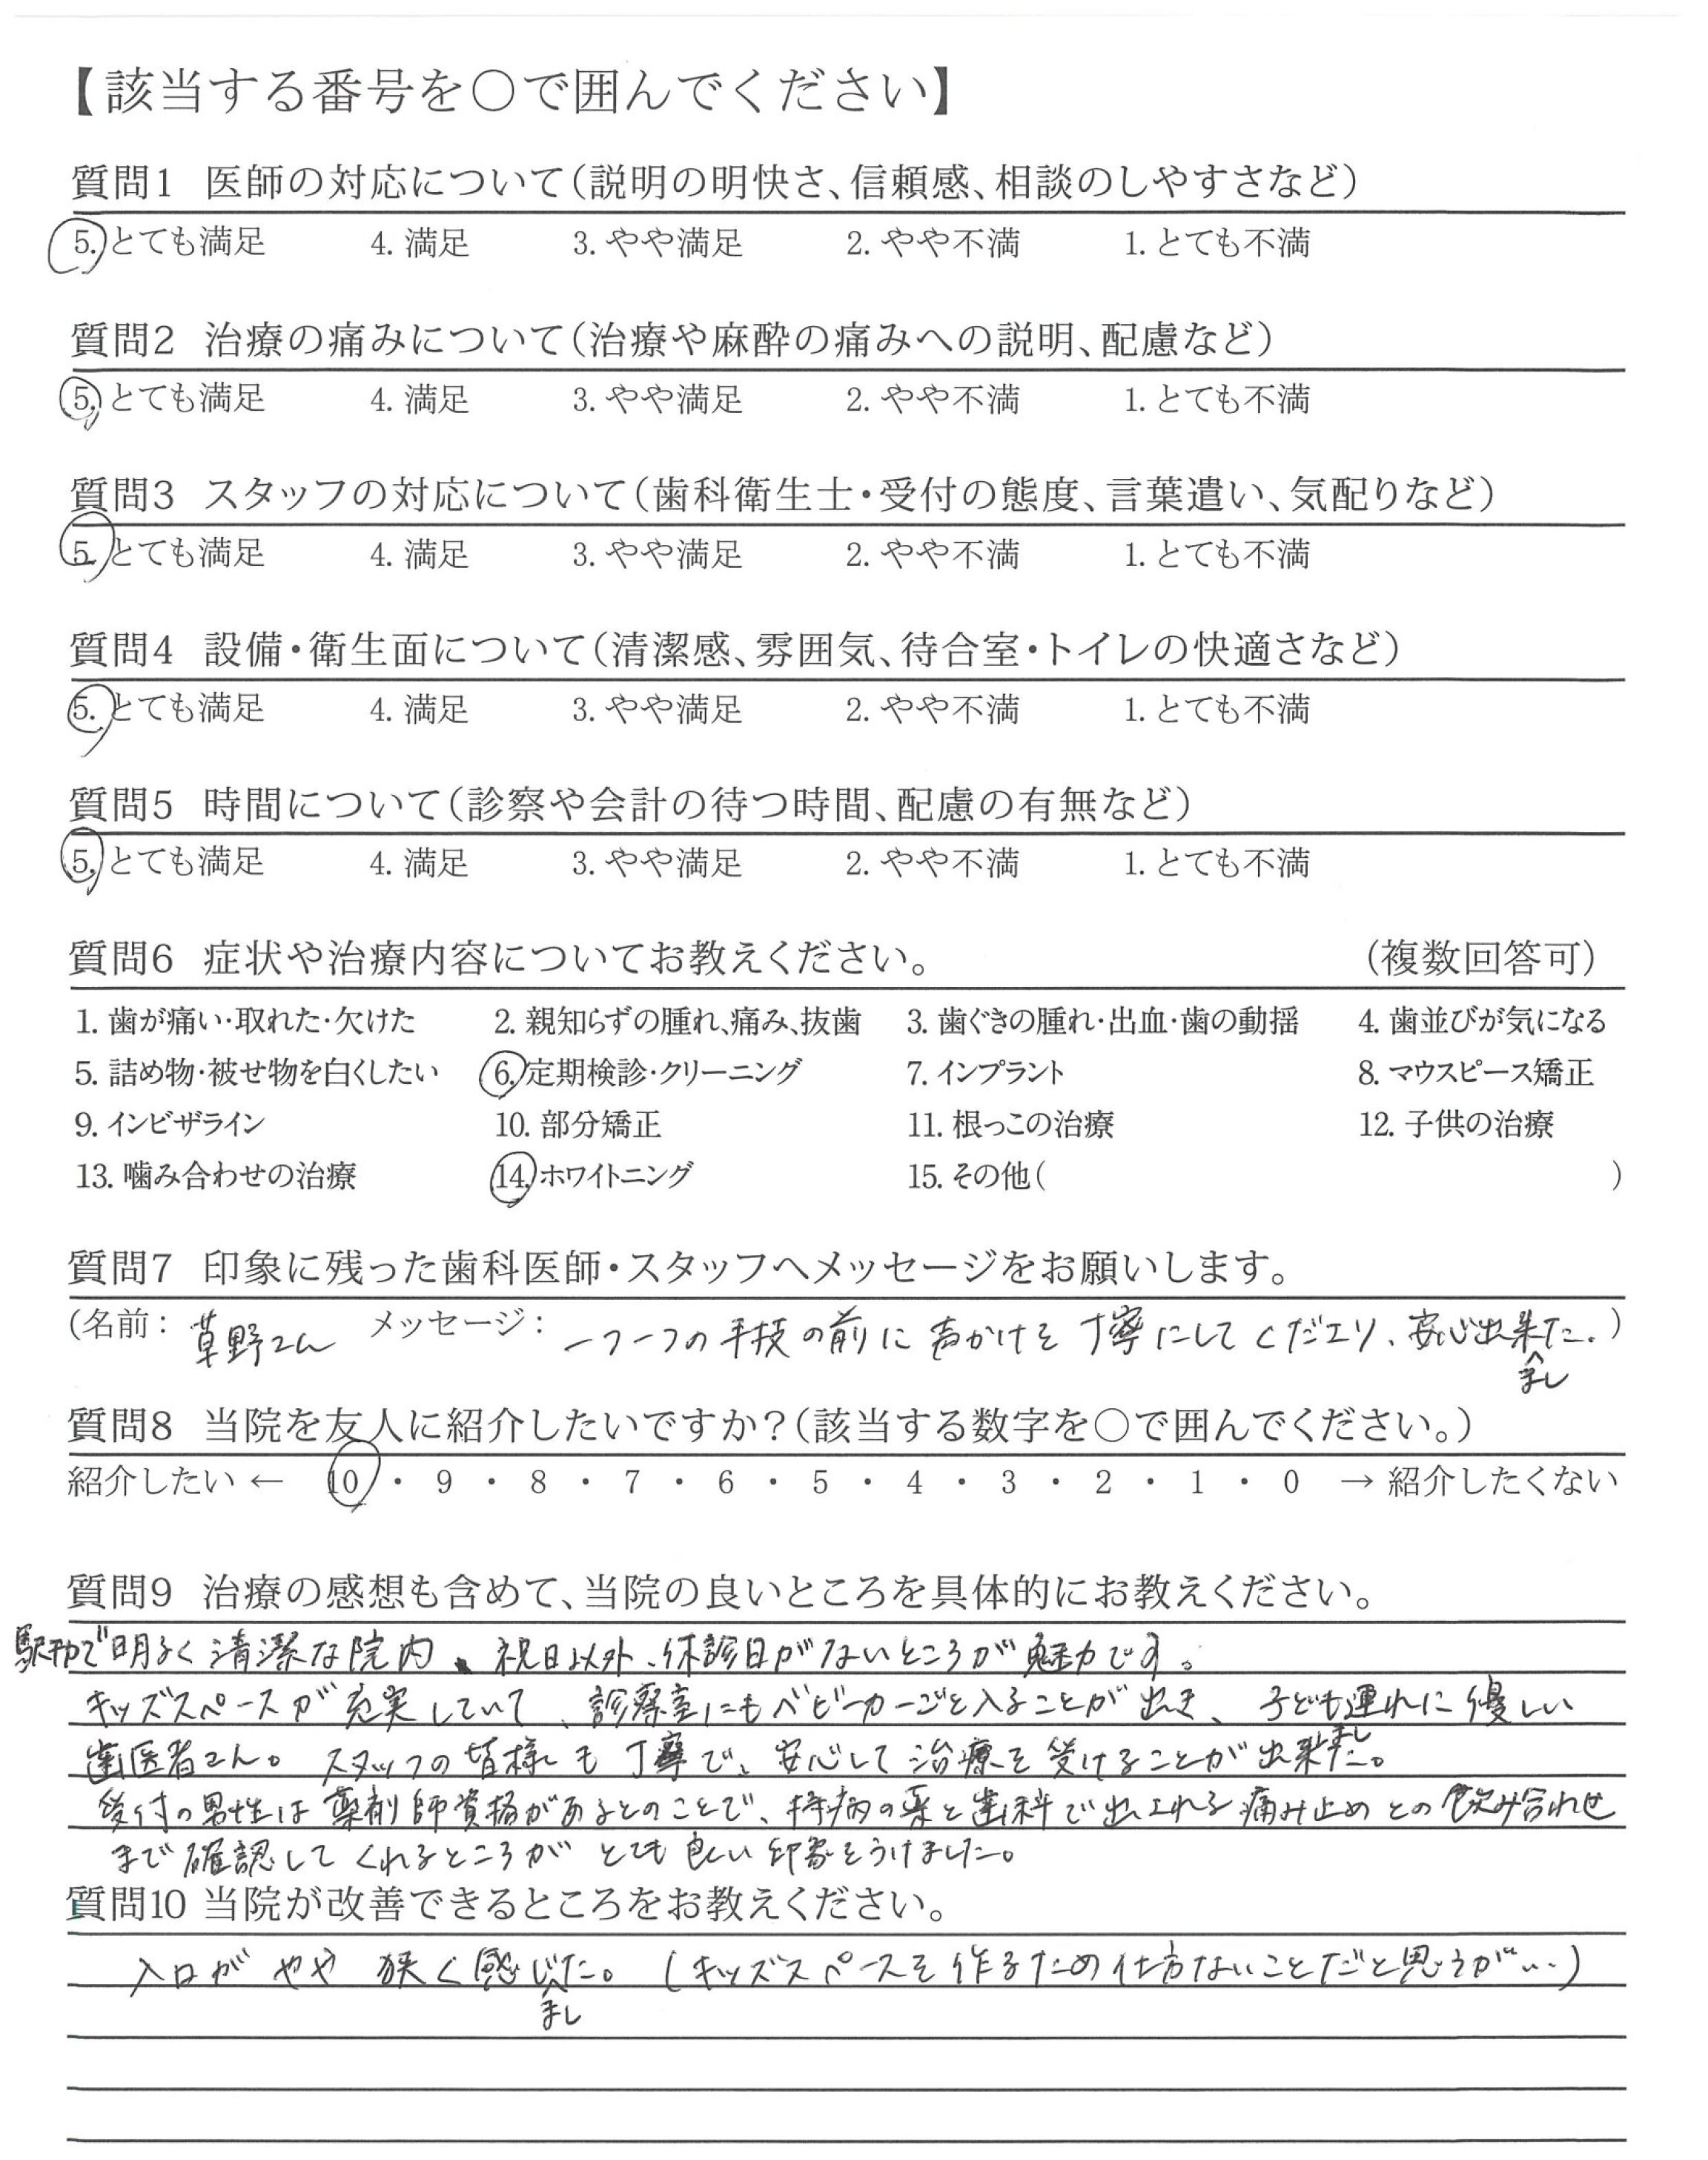 【該当する番号を〇で囲んでください】
質問1 医師の対応について（説明の明快さ、信頼感、相談のしやすさなど）
5. とても満足 4. 満足 3. やや満足 2. やや不満 1. とても不満
質問2 治療の痛みについて（治療や麻酔の痛みへの説明、配慮など）
5. とても満足 4. 満足 3. やや満足 2. やや不満 1. とても不満
質問3 スタッフの対応について（歯科衛生士・受付の態度、言葉遣い、気配りなど）
5. とても満足 4. 満足 3. やや満足 2. やや不満 1. とても不満
質問4 設備・衛生面について（清潔感、雰囲気、待合室・トイレの快適さなど）
5. とても満足 4. 満足 3. やや満足 2. やや不満 1. とても不満
質問5 時間について（診察や会計の待つ時間、配慮の有無など）
5. とても満足 4. 満足 3. やや満足 2. やや不満 1. とても不満
質問6 症状や治療内容についてお教えください。 （複数回答可）
1. 歯が痛い・取れた・欠けた 2. 親知らずの腫れ、痛み、抜歯 3. 歯ぐきの腫れ・出血・歯の動揺 4. 歯並びが気になる
5. 詰め物・被せ物を白くしたい 6. 定期検診・クリーニング 7. インプラント 8. マウスピース矯正
9. インビザライン 10. 部分矯正 11. 根っこの治療 12. 子供の治療
13. 噛み合わせの治療 14. ホワイトニング 15. その他（ ）
質問7 印象に残った歯科医師・スタッフへメッセージをお願いします。
（名前： 草野さん メッセージ： 一つ一つの手技の前に声かけを丁寧にしてくださり、安心出来ました。）
質問8 当院を友人に紹介したいですか？（該当する数字を〇で囲んでください。）
紹介したい ← 10 ・ 9 ・ 8 ・ 7 ・ 6 ・ 5 ・ 4 ・ 3 ・ 2 ・ 1 ・ 0 → 紹介したくない
質問9 治療の感想も含めて、当院の良いところを具体的にお教えください。
で明るく清潔な院内、祝日以外、休診日がないところが魅力です。
キッズスペースが充実していて、診察室にもベビーカーごと入ることが出き、子ども連れに優しい
歯医者さん。スタッフの皆様も丁寧で、安心して治療を受けることが出来ました。
受付の男性は薬剤師資格があるとのことで、持病の薬と歯科で出される痛み止めとの飲み合わせ
まで確認してくれるところがとても良い印象をうけました。
質問10 当院が改善できるところをお教えください。
入口がやや狭く感じました。（キッズスペースを作るため仕方ないことだと思うが…）